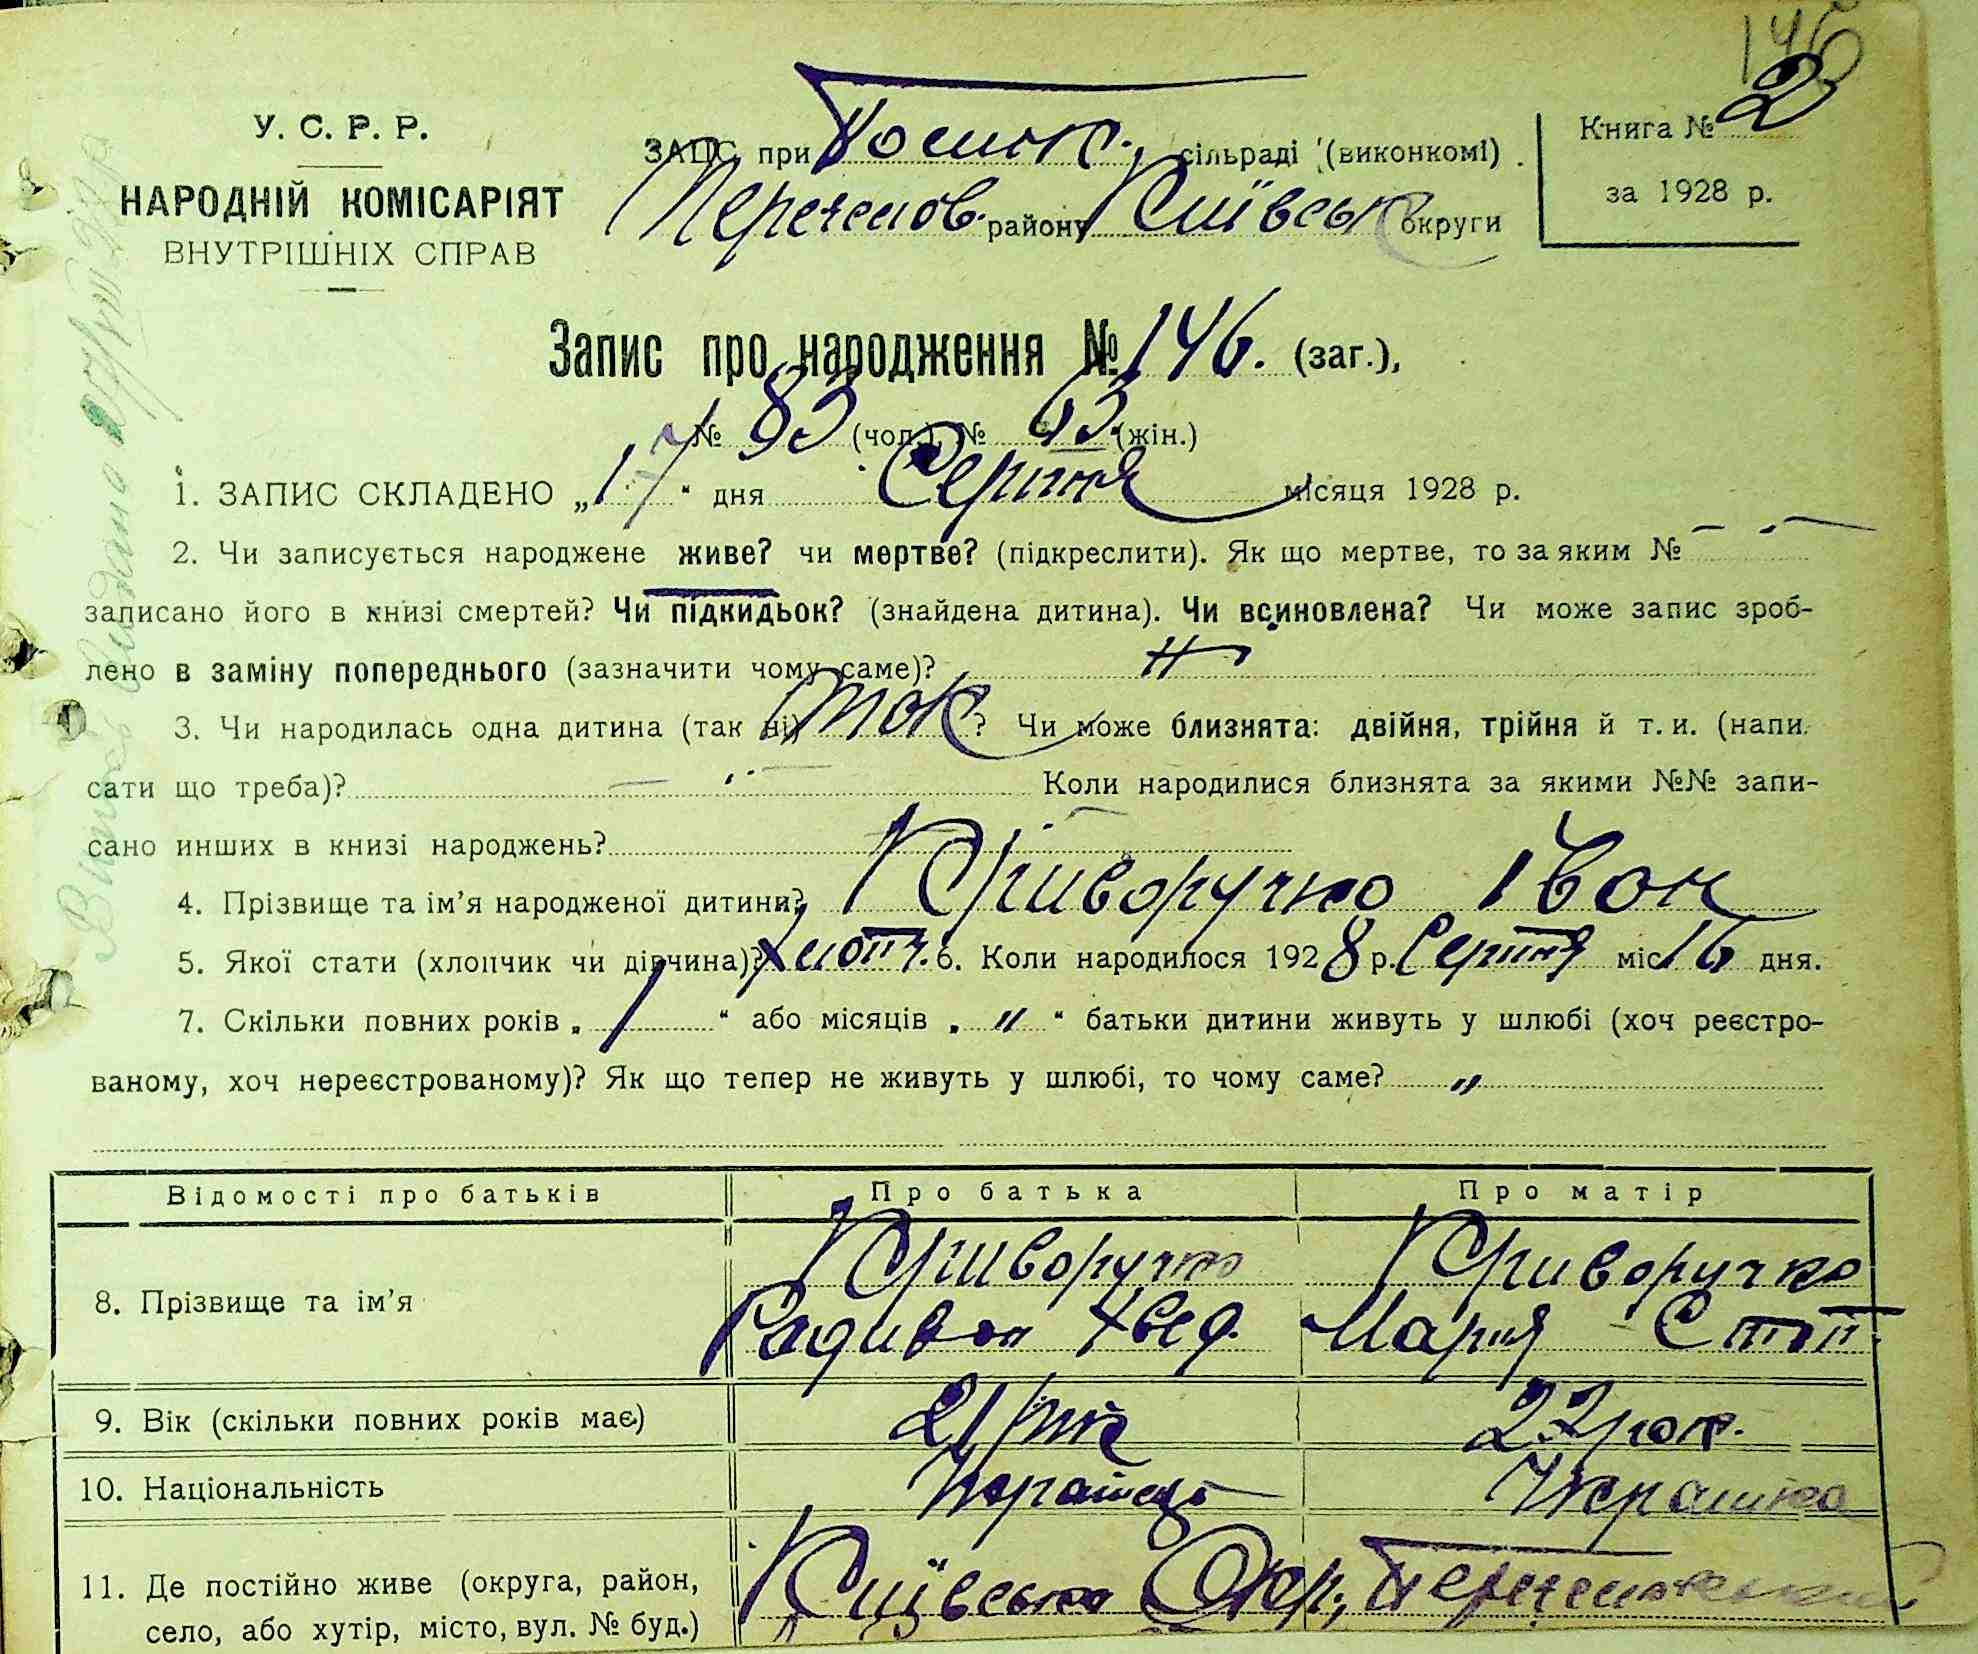 146
У. С. Р. Р.
НАРОДНІЙ КОМІСАРІЯТ
ВНУТРІШНІХ СПРАВ
ЗАПС при сільраді (виконкомі)
району Київськ округи
Книга № 2
за 1928 р.
Запис про народження № 146. (заг.),
№ 83 (чол.) № 63. (жін.)
1. ЗАПИС СКЛАДЕНО „17“ дня Серпня місяця 1928 р.
2. Чи записується народжене живе? чи мертве? (підкреслити). Як що мертве, то за яким №
записано його в книзі смертей? Чи підкидьок? (знайдена дитина). Чи всиновлена? Чи може запис зроб-
лено в заміну попереднього (зазначити чому саме)?
3. Чи народилась одна дитина (так ні) так? Чи може близнята: двійня, трійня й т. и. (напи-
сати що треба)? Коли народилися близнята за якими №№ запи-
сано инших в книзі народжень?
4. Прізвище та ім’я народженої дитини? Криворучко Іван
5. Якої стати (хлопчик чи дівчина)? хлопч. 6. Коли народилося 1928 р. Серпня міс 16 дня.
7. Скільки повних років „ 1 “ або місяців „ " “ батьки дитини живуть у шлюбі (хоч реєстро-
ваному, хоч нереєстрованому)? Як що тепер не живуть у шлюбі, то чому саме? "
Відомості про батьків Про батька Про матір
8. Прізвище та ім’я Криворучко Радивон Хвед. Криворучко Мария Степ.
9. Вік (скільки повних років має) 21 рік 22 рок.
10. Національність Українець Українка
11. Де постійно живе (округа, район,
село, або хутір, місто, вул. № буд.) Київська Окр,